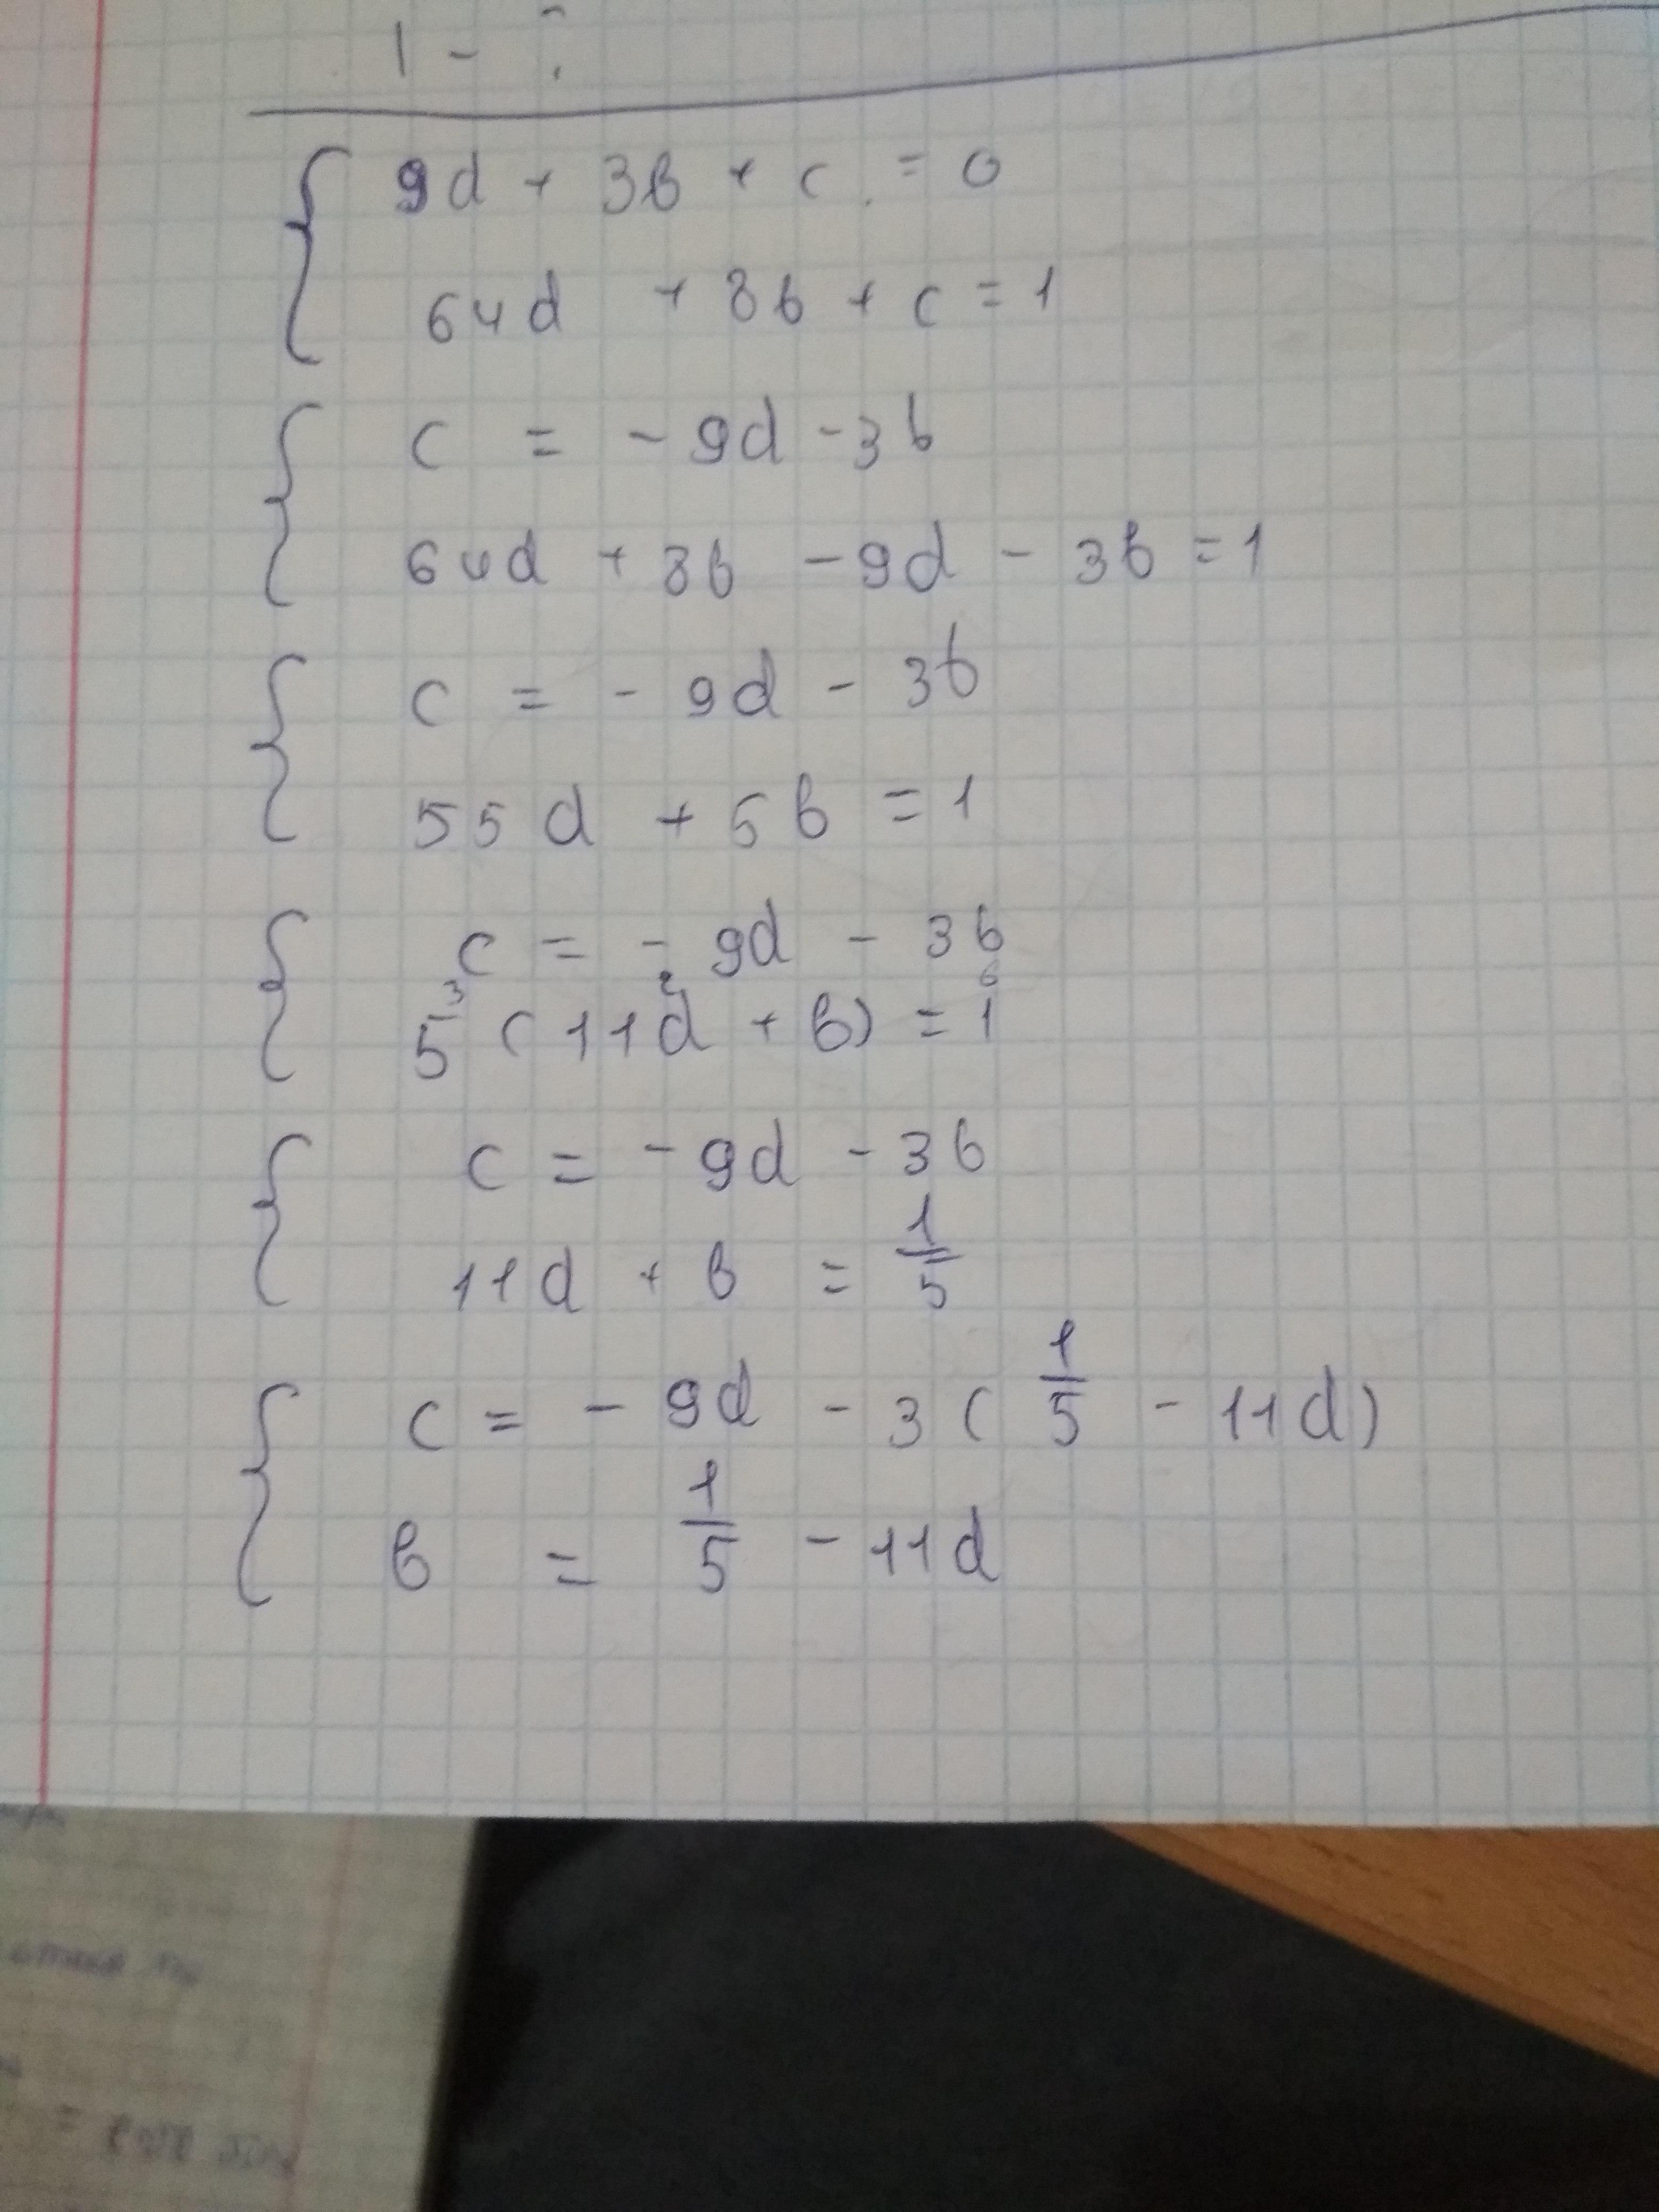 1 - ?
9d + 3b + c = 0
64d + 8b + c = 1
c = - 9d - 3b
64d + 8b - 9d - 3b = 1
c = - 9d - 3b
55d + 5b = 1
c = - 9d - 3b
5 (11d + b) = 1
c = - 9d - 3b
11d + b = 1/5
c = - 9d - 3 (1/5 - 11d)
b = 1/5 - 11d